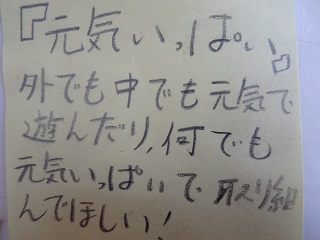 『元気いっぱい』
外でも中でも元気で
遊んだり、何でも
元気いっぱいで取り組
んでほしい!